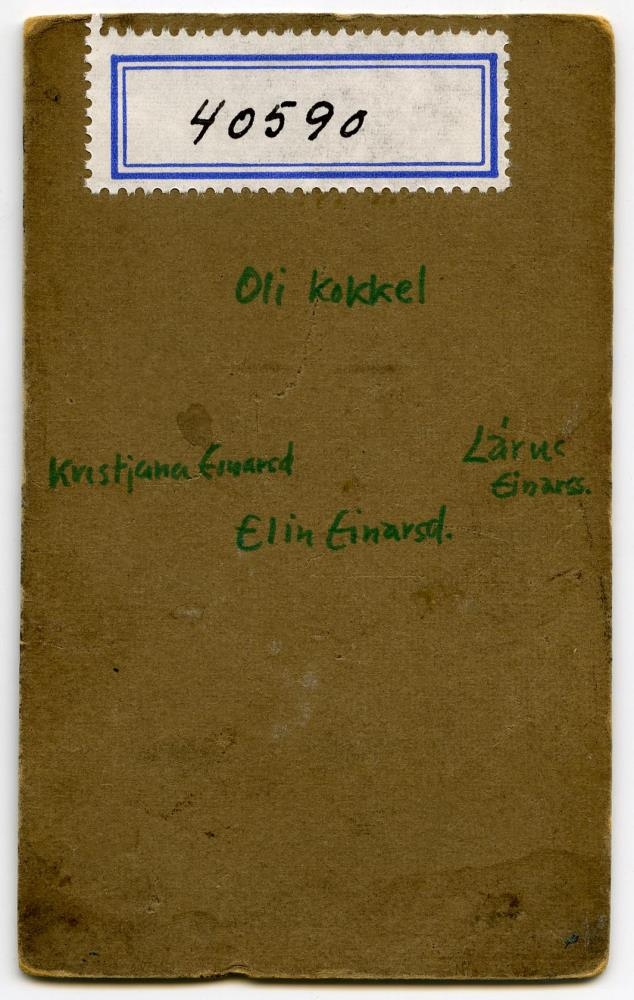 40590
Oli Kokkel
Kristjana Einarsd
Lárus
Einarss.
Elin Einarsd.